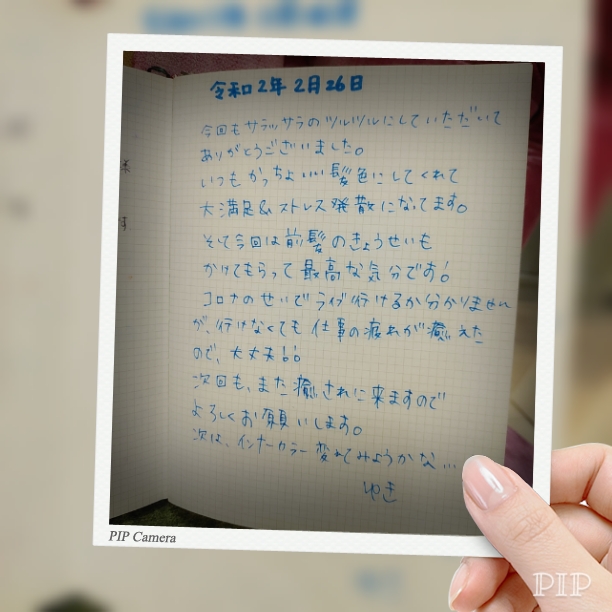 令和2年 2月26日
今回もサラッサラのツルツルにしていただいて
ありがとうございました。
いつもかっちょいい髪色にしてくれて
大満足&ストレス発散になってます。
そして今回は前髪のきょうせいも
かけてもらって最高な気分です!
コロナのせいでライブ行けるか分かりません
が、行けなくても仕事の疲れが癒えた
ので、大丈夫!!
次回も、また癒されに来ますので
よろしくお願いします。
次は、インナーカラー変えてみようかな...
ゆき
PIP Camera
PIP